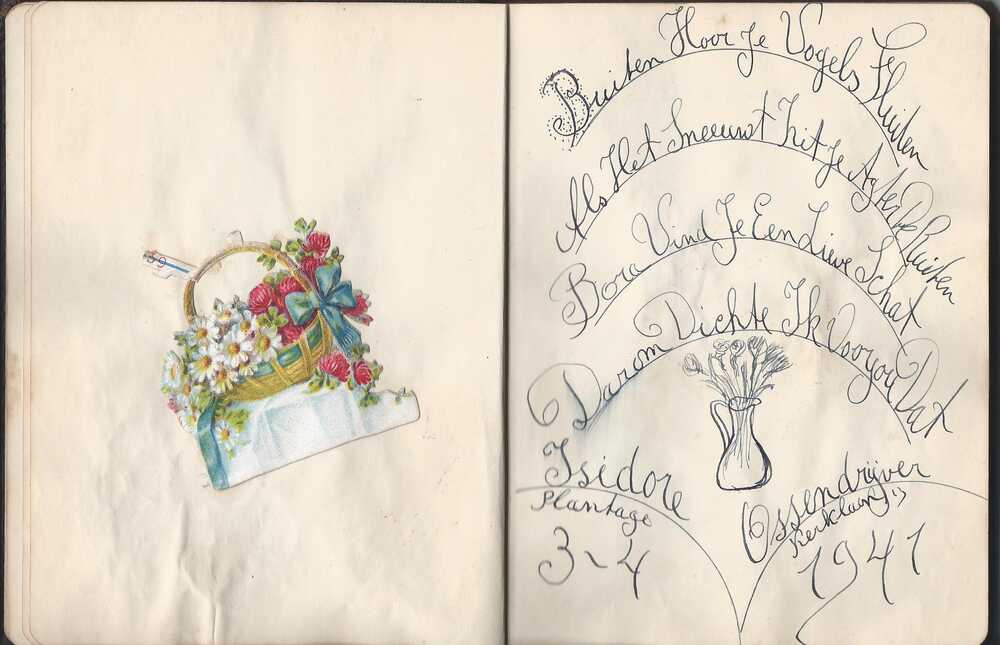 59
Buiten Hoor Je Vogels Fluiten
Als Het Sneeuwt Zit Je Agter De Ruiten
Bora Vind Je Een Lieve Schat
Darom Dichte Ik Voor you Dat
Isidore Ossendrijver
Plantage Kerklaan
3-4 1941